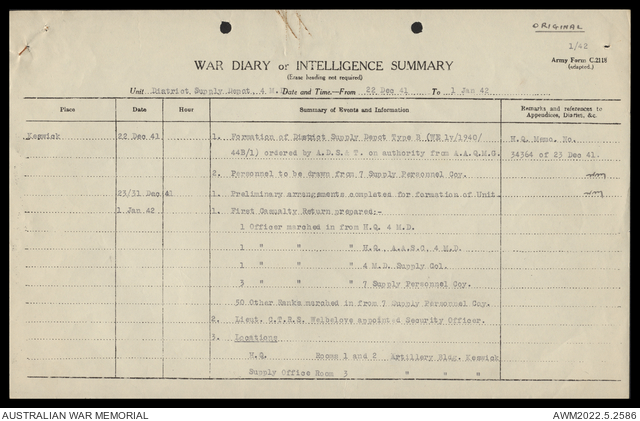 ORIGINAL
1/42
WAR DIARY or INTELLIGENCE SUMMARY
Army Form C.2118
(adapted.)
(Erase heading not required)
Unit District Supply Depot 4 M. Date and Time.—From 22 Dec 41 To 1 Jan 42
Place Date Hour Summary of Events and Information Remarks and references to Appendices, District, &c.
Keswick 22 Dec 41 1. Formation of District Supply Depot Type B (WE 1v/1940/ H.Q. Memo. No.
44B/1) ordered by A.D.S & T. on authority from A.A.Q.M.G. 34364 of 23 Dec 41.
2. Personnel to be drawn from 7 Supply Personnel Coy.
23/31 Dec 41 1. Preliminary arrangements completed for formation of Unit.
1 Jan 42 1. First Casualty Return prepared:-
1 Officer marched in from H.Q. 4 M.D.
1 " " " H.Q. A.A.S.C 4 M.D.
1 " " " 4 M.D. Supply Col.
3 " " " 7 Supply Personnel Coy.
50 Other Ranks marched in from 7 Supply Personnel Coy.
2. Lieut. C.T.R.S. Welbelove appointed Security Officer.
3. Locations
H.Q. Rooms 1 and 2 Artillery Bldg. Keswick
Supply Office Room 3 " " "
AUSTRALIAN WAR MEMORIAL
AWM2022.5.2586